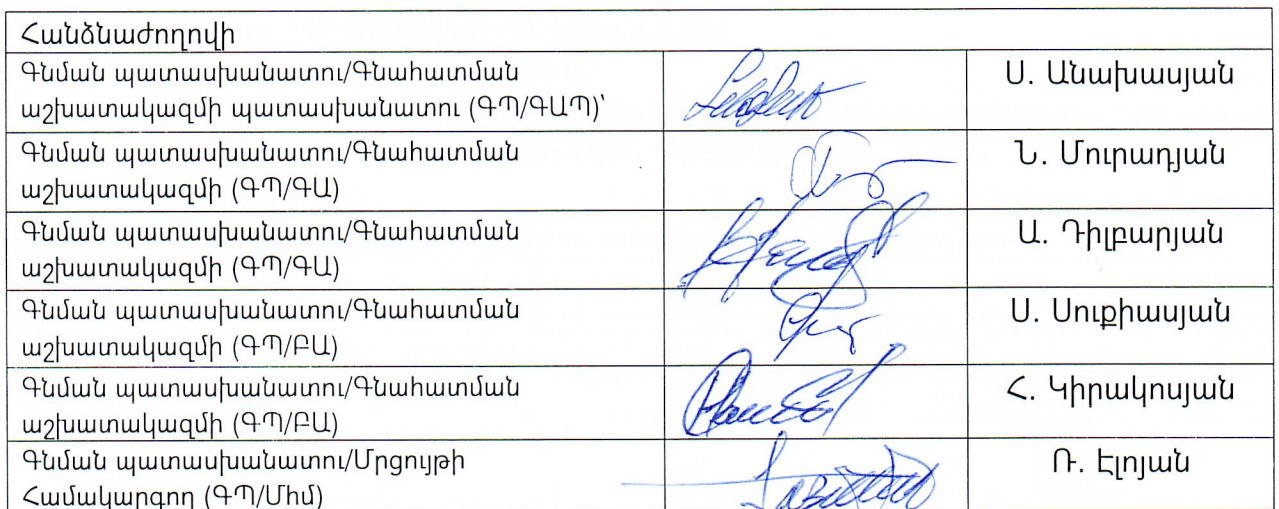 Հանձնաժողովի
Գնման պատասխանատու/Գնահատման
աշխատակազմի պատասխանատու (ԳՊ/ԳԱՊ)՝
Ս. Անախասյան
Գնման պատասխանատու/Գնահատման
աշխատակազմի (ԳՊ/ԳԱ)
Ն. Մուրադյան
Գնման պատասխանատու/Գնահատման
աշխատակազմի (ԳՊ/ԳԱ)
Ա. Դիլբարյան
Գնման պատասխանատու/Գնահատման
աշխատակազմի (ԳՊ/ԲԱ)
Ս. Սուքիասյան
Գնման պատասխանատու/Գնահատման
աշխատակազմի (ԳՊ/ԲԱ)
Հ. Կիրակոսյան
Գնման պատասխանատու/Մրցույթի
Համակարգող (ԳՊ/Մհմ)
Ռ. Էլոյան